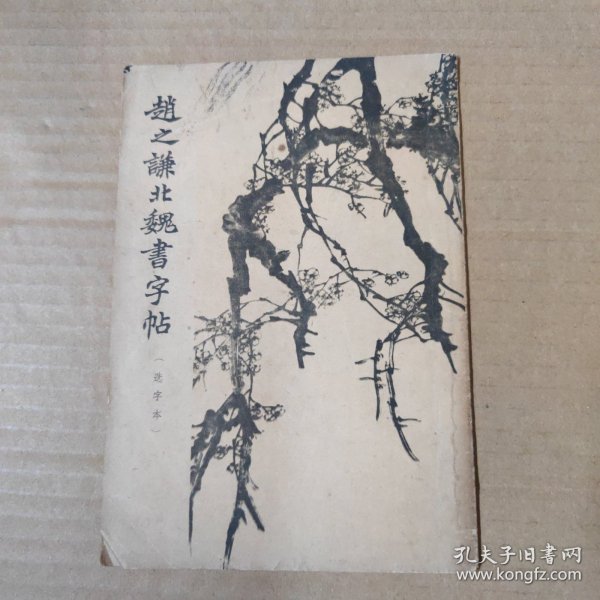 趙之謙北魏書字帖
（选字本）
孔夫子旧书网
www.kongfz.com